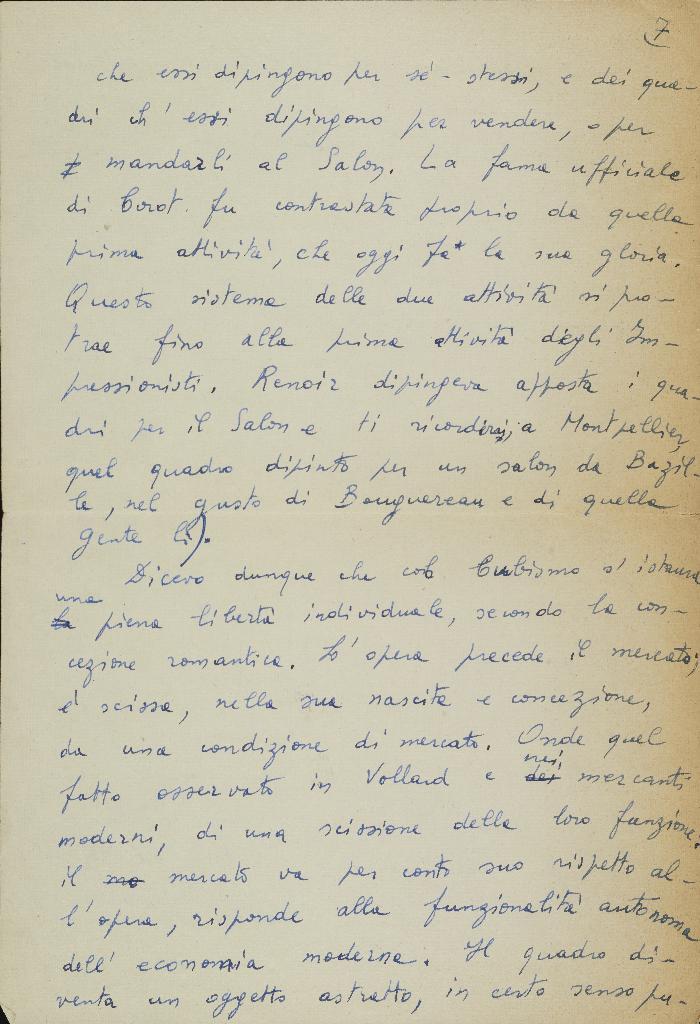 7
che essi dipingono per sé-stessi, e dei qua-
dri ch'essi dipingono per vendere, o per
mandarli al Salon. La fama ufficiale
di Corot fu contrastata proprio da quella
prima attività, che oggi fa* la sua gloria.
Questo sistema delle due attività si pro-
trae fino alla prima attività degli Im-
pressionisti. Renoir dipingeva apposta i qua-
dri per il Salon e ti ricorderai, a Montpellier,
quel quadro dipinto per un salon da Bazil-
le, nel gusto di Bouguereau e di quella
gente lì).
Dicevo dunque che col Cubismo s'istaura
una
la piena libertà individuale, secondo la con-
cezione romantica. L'opera precede il mercato;
è scissa, nella sua nascita e concezione,
da una condizione di mercato. Onde quel
nei
fatto osservato in Vollard e dei mercanti
moderni, di una scissione della loro funzione:
il mercato va per conto suo rispetto al-
l'opera, risponde alla funzionalità autonoma
dell'economia moderna. Il quadro di-
venta un oggetto astratto, in certo senso pu-